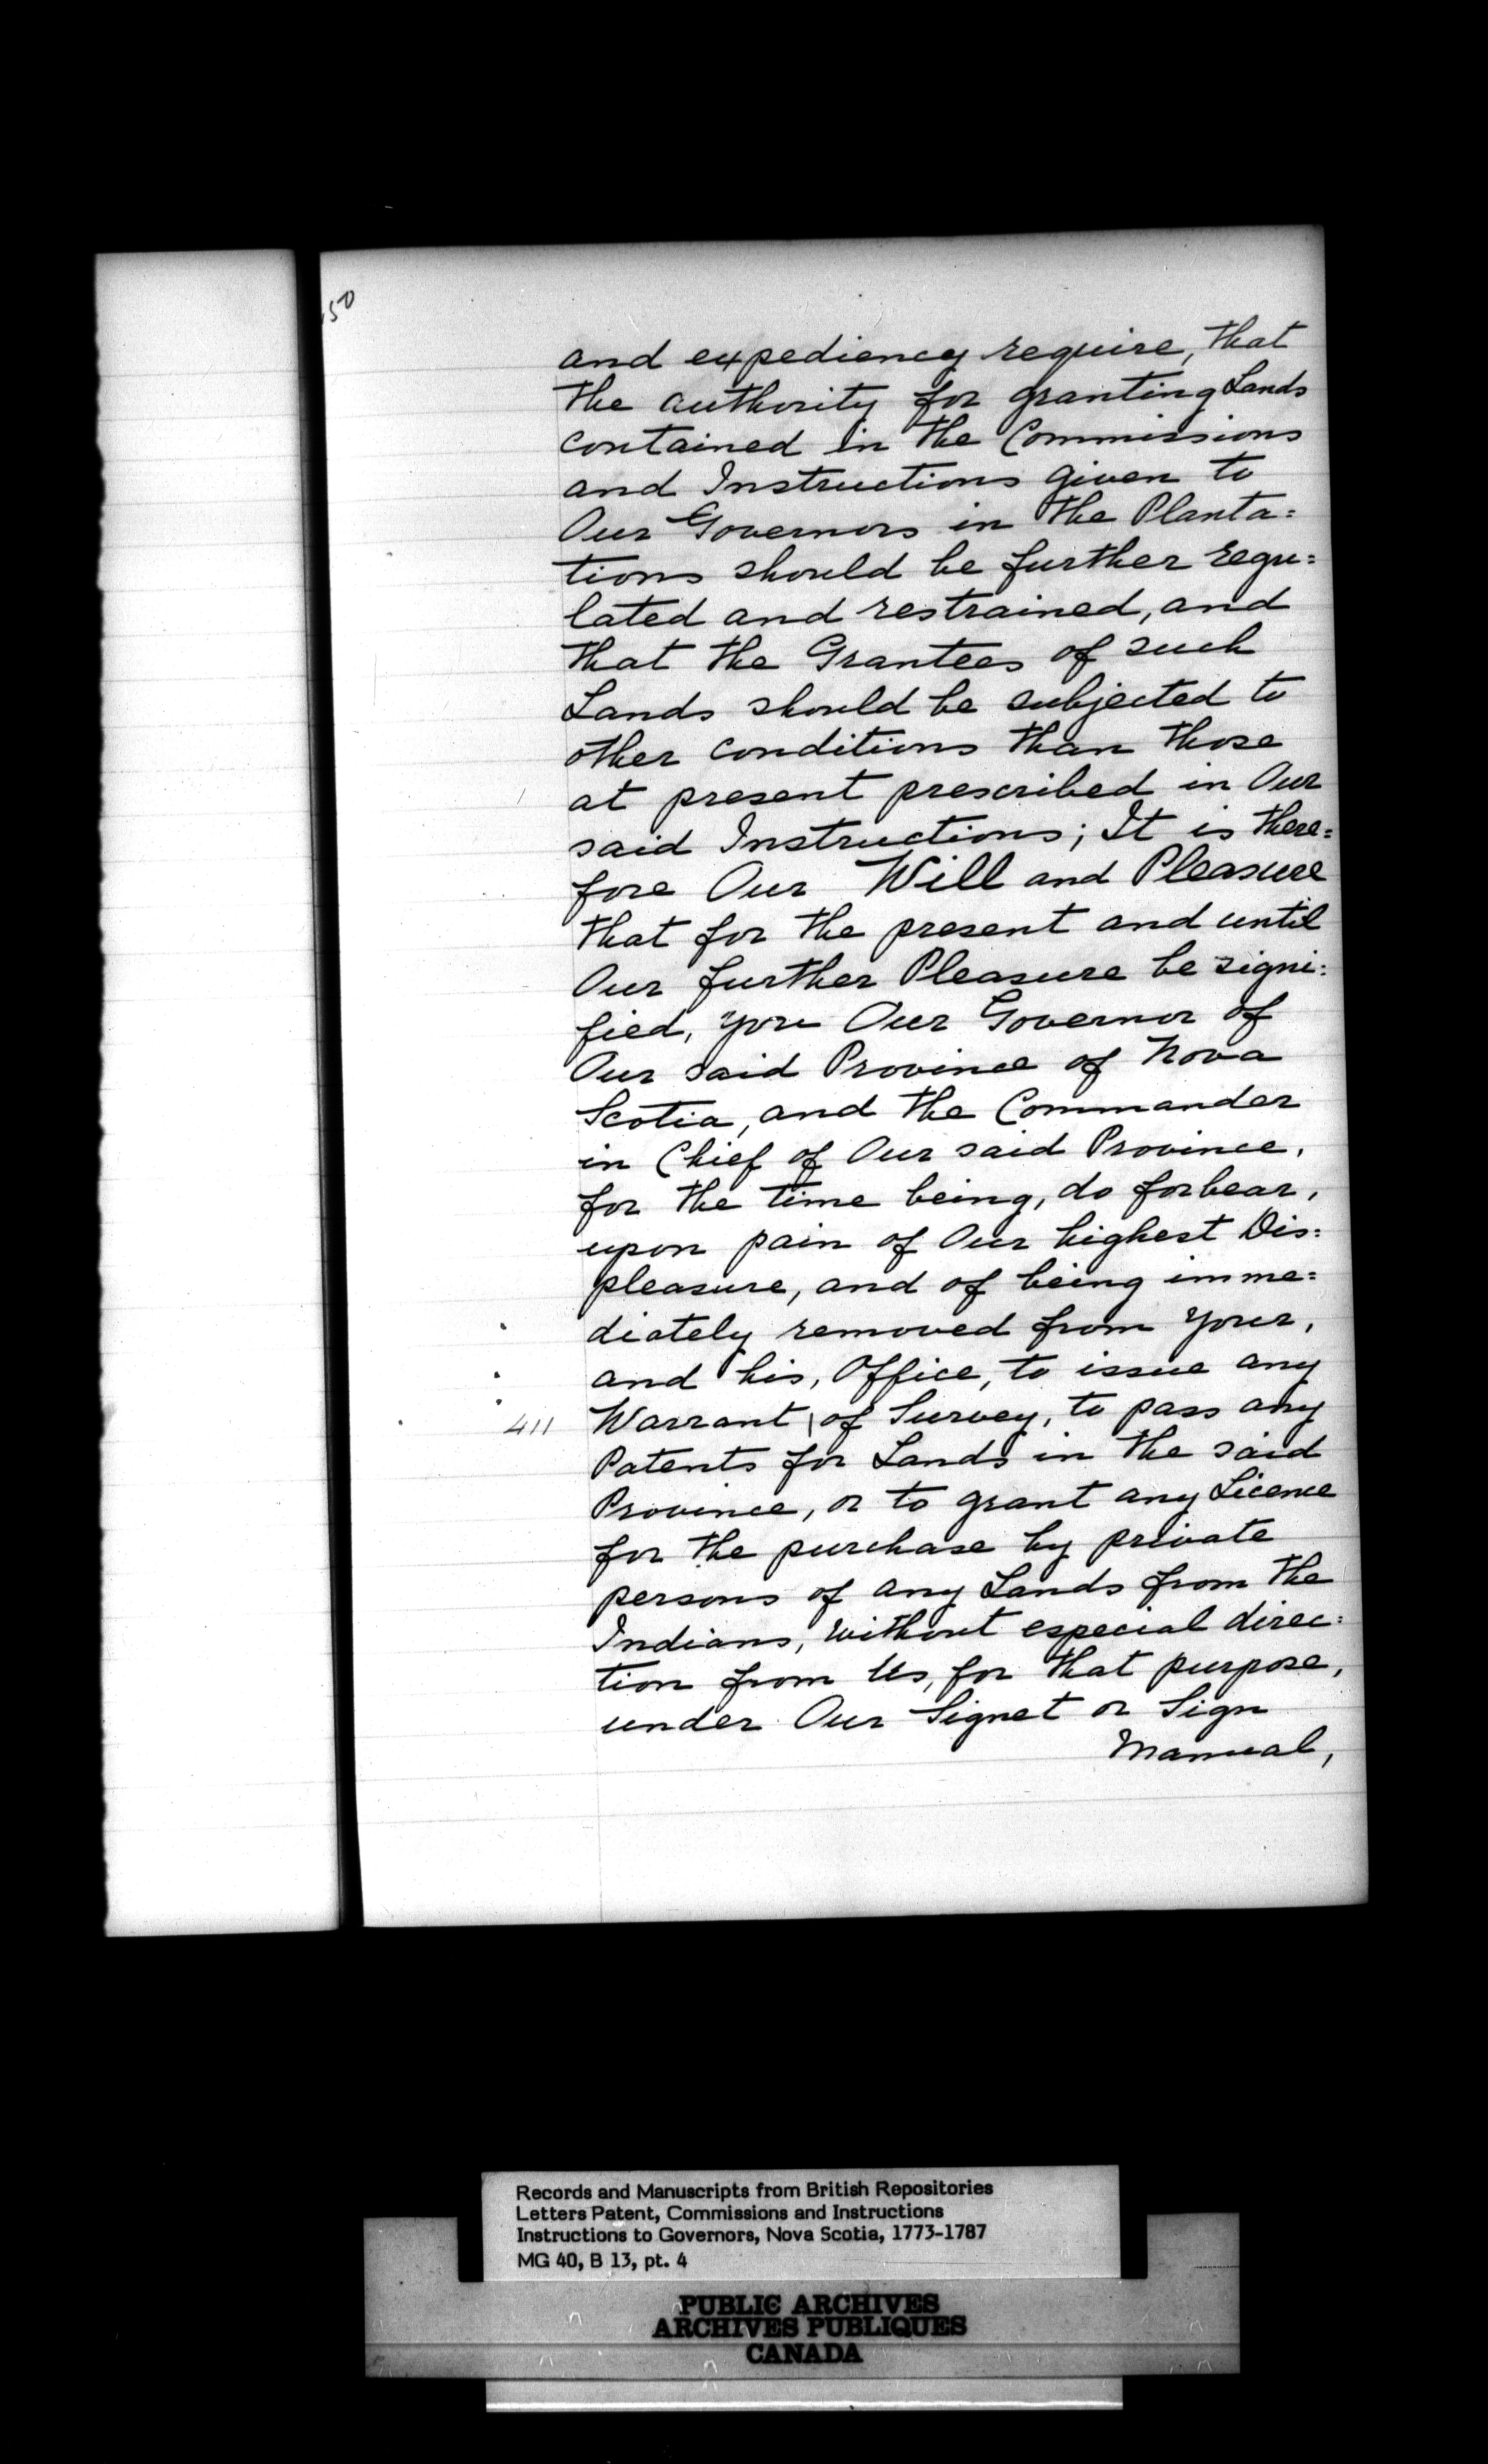 50
and expediency require, that
the authority for granting Lands
contained in the Commissions
and Instructions given to
Our Governors in the Planta=
tions should be further regu=
lated and restrained, and
that the Grantees of such
Lands should be subjected to
other conditions than those
at present prescribed in Our
said Instructions; It is there=
fore Our Will and Pleasure
that for the present and until
Our further Pleasure be signi=
fied, you Our Governor of
Our said Province of Nova
Scotia, and the Commander
in Chief of Our said Province,
for the time being, do forbear,
upon pain of Our highest Dis=
pleasure, and of being imme=
diately removed from your,
and his, Office, to issue any
411 Warrant | of Survey, to pass any
Patents for Lands in the said
Province, or to grant any Licence
for the purchase by private
persons of any Lands from the
Indians, without especial direc=
tion from Us, for that purpose,
under Our Signet or Sign
Manual,
Records and Manuscripts from British Repositories
Letters Patent, Commissions and Instructions
Instructions to Governors, Nova Scotia, 1773-1787
MG 40, B 13, pt. 4
PUBLIC ARCHIVES
ARCHIVES PUBLIQUES
CANADA